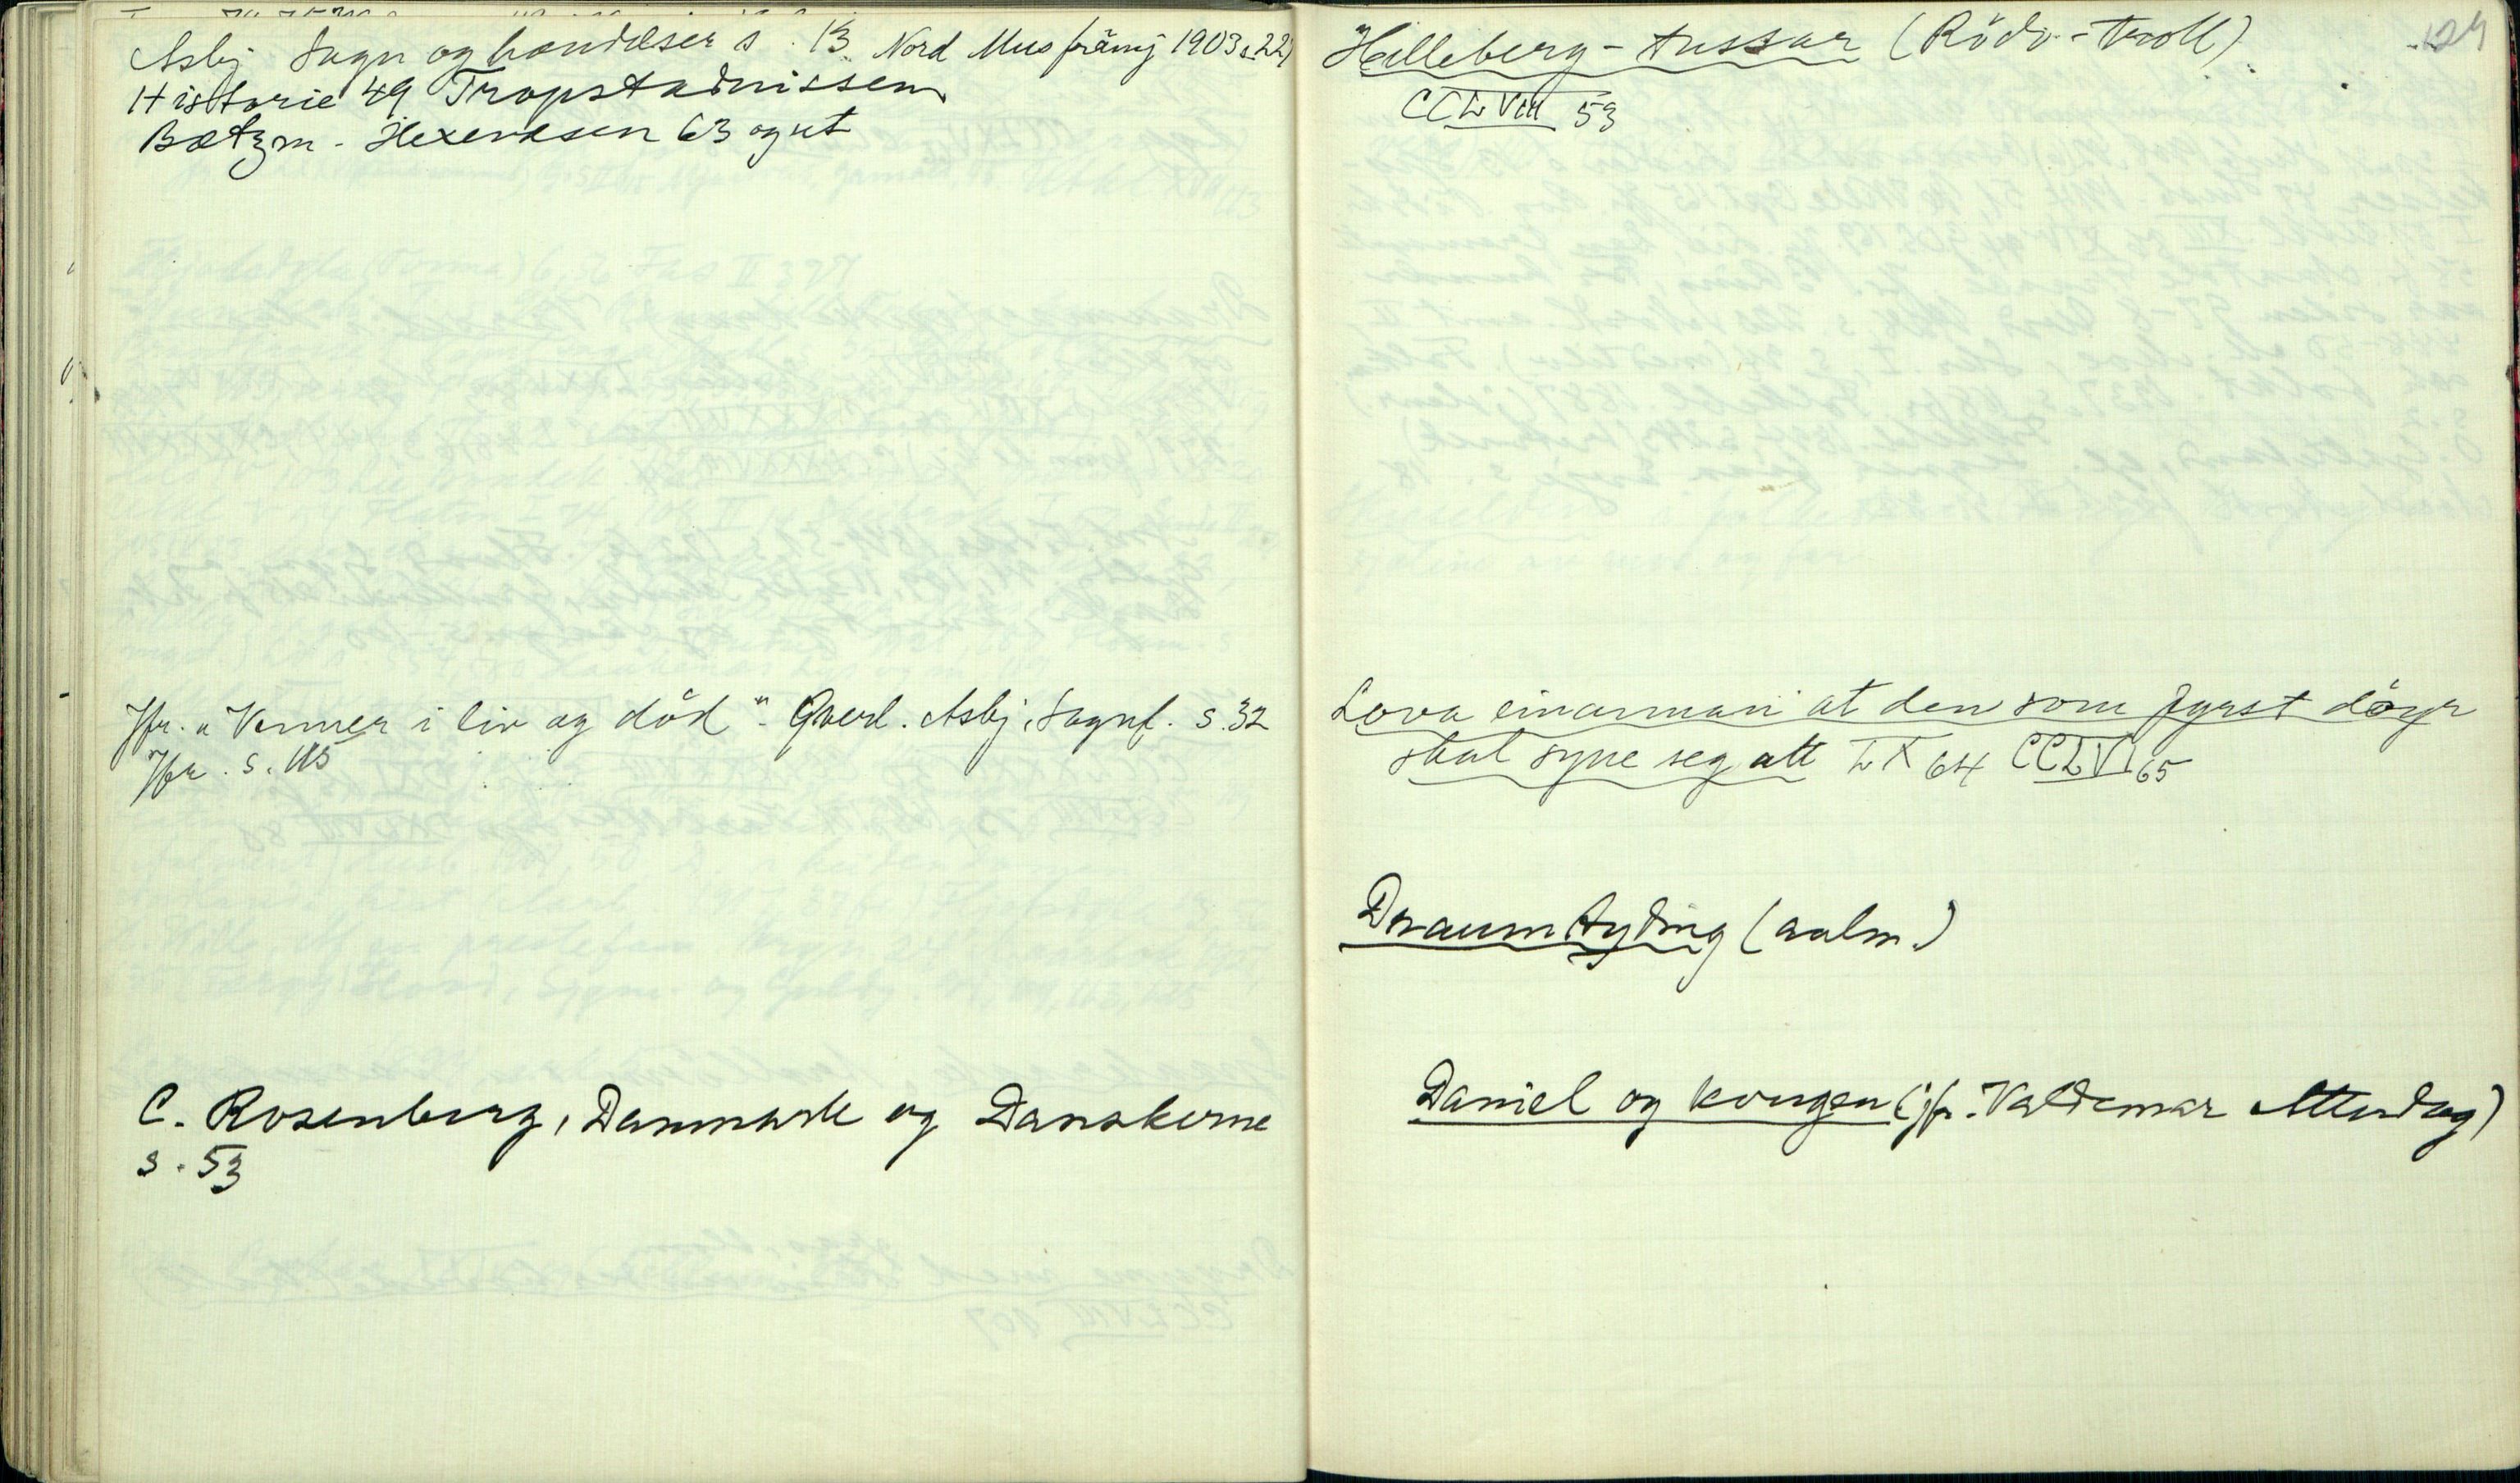 Asbj Sagn og hændelser s. 13 Nord Mus främj 1903 s. 22,
Historie 49 Tropstadnissen
Bætzm - Hexevæsen 63 og ut
Jfr. "Venner i liv og död" - Qverl. Asbj. Sagnf. s. 32
Jfr. s. 115
C. Rosenberg, Danmark og Danskerne
s. 53
124
Helleberg-tussar (Rödv-troll)
CCLVIII 53
Lova einannan at den som fyrst döyr
skal syne seg att LX 64 CCLVI 65
Draumtyding (aalm.)
Daniel og kongen (jfr. Valdemar Atterdag)